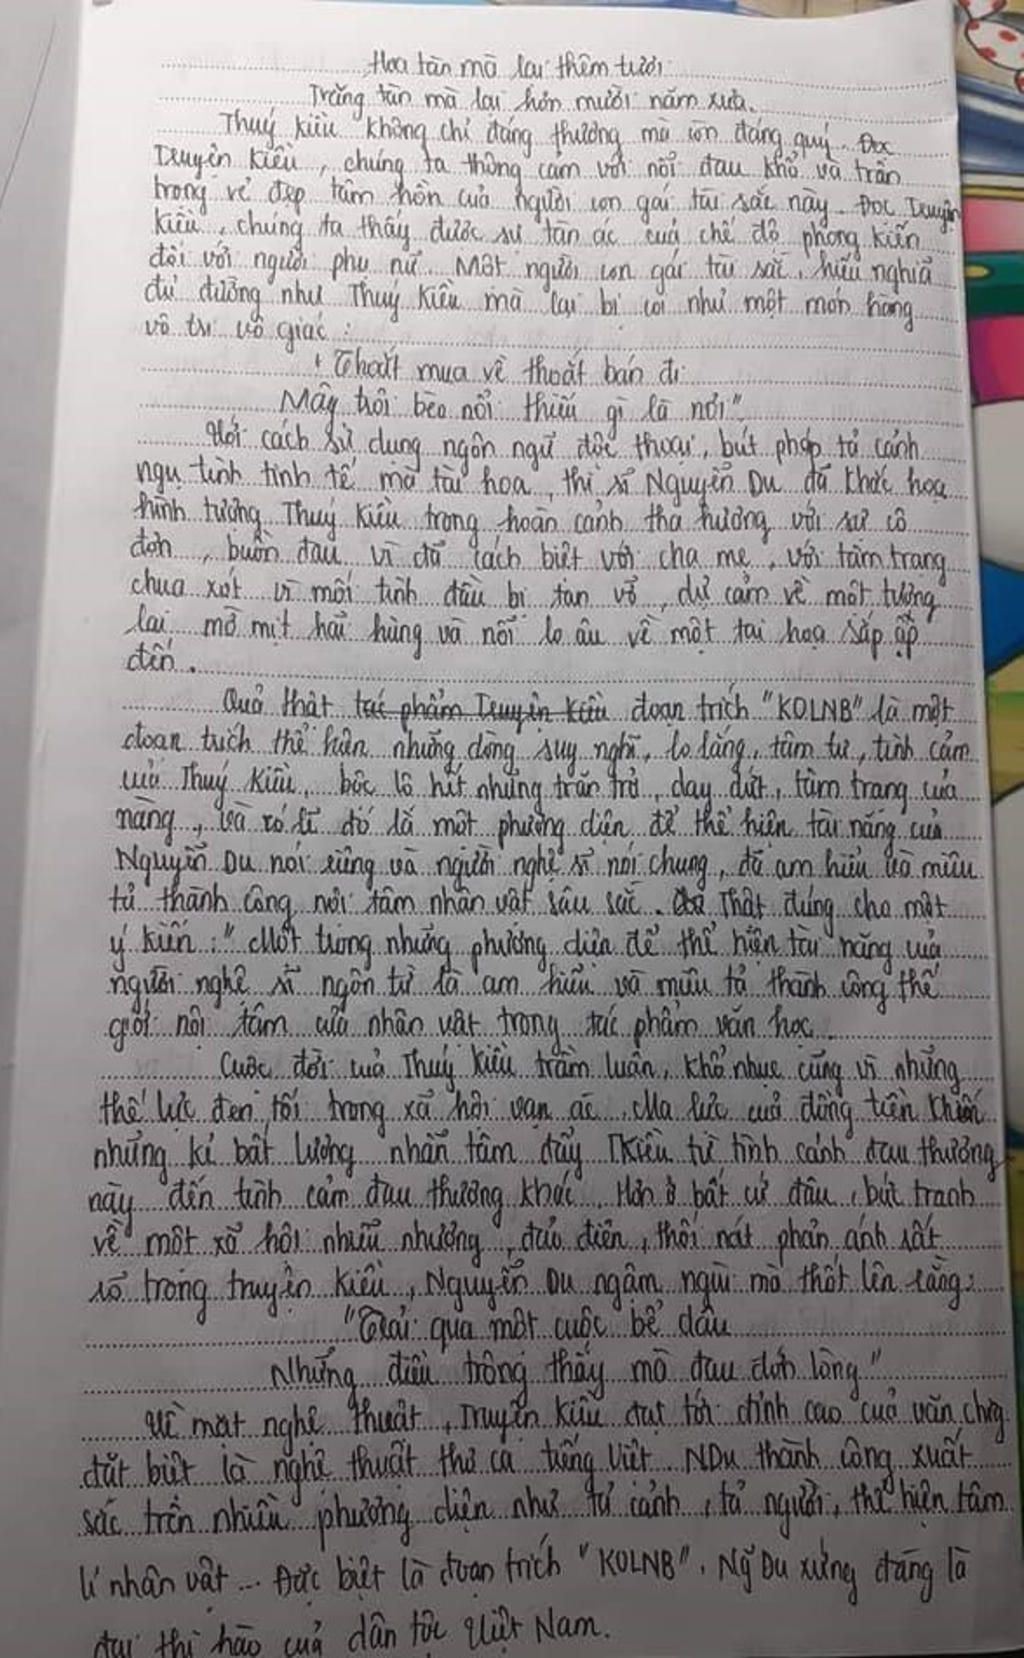 Hoa tàn mà lại thêm tươi
Trăng tàn mà lại hơn mười năm xưa.
Thuý Kiều không chỉ đáng thương mà còn đáng quý. Đọc
Truyện Kiều, chúng ta thông cảm với nỗi đau khổ và trân
trọng vẻ đẹp tâm hồn của người con gái tài sắc này. Đọc Truyện
Kiều, chúng ta thấy được sự tàn ác cuả chế độ phong kiến
đối với người phụ nữ. Một người con gái tài sắc, hiếu nghiã
đủ đường như Thuý Kiều mà lại bị coi như một món hàng
vô tri vô giác:
"Thoắt mua về thoắt bán đi
Mây trôi bèo nổi thiếu gì là nơi"
Với cách sử dụng ngôn ngữ độc thoại, bút pháp tả cảnh
ngụ tình tinh tế mà tài hoa, thi sĩ Nguyễn Du đã khắc hoạ
hình tượng Thuý Kiều trong hoàn cảnh tha hương với sự cô
đơn, buồn đau vì đã cách biệt với cha mẹ, với tâm trạng
chua xót vì mối tình đầu bị tan vỡ, dự cảm về một tương
lai mờ mịt hãi hùng và nỗi lo âu về một tai hoạ sắp ập
đến.
Quả thật tác phẩm Truyện Kiều đoạn trích "KOLNB" là một
đoạn trích thể hiện những dòng suy nghĩ, lo lắng, tâm tư, tình cảm
của Thuý Kiều, bộc lộ hết những trăn trở, day dứt, tâm trạng của
nàng, và có lẽ đó là một phương diện để thể hiện tài năng của
Nguyễn Du nói riêng và người nghệ sĩ nói chung, đã am hiểu và miêu
tả thành công nội tâm nhân vật sâu sắc. Thật đúng cho một
ý kiến: "Một trong những phương diện để thể hiện tài năng của
người nghệ sĩ ngôn từ là am hiểu và miêu tả thành công thế
giới nội tâm của nhân vật trong tác phẩm văn học.
Cuộc đời cuả Thuý Kiều trầm luân, khổ nhục cũng vì những
thế lực đen tối trong xã hội vạn ác. Ma lực cuả đồng tiền khiến
những kẻ bất lương nhẫn tâm đẩy TKiều từ tình cảnh đau thương
này đến tình cảm đau thương khác. Hơn ở bất cứ đâu, bức tranh
về một xã hội nhiễu nhương, đảo điên, thối nát phản ánh rất
rõ trong truyện Kiều, Nguyễn Du ngậm ngùi mà thốt lên rằng:
"Trải qua một cuộc bể dâu
Những điều trông thấy mà đau đớn lòng"
Về mặt nghệ thuật, Truyện Kiều đạt tới đỉnh cao cuả văn chg
đặt biệt là nghệ thuật thơ ca tiếng Việt. NDu thành công xuất
sắc trên nhiều phương diện như tả cảnh, tả người, thể hiện tâm
lí nhân vật... Đặc biệt là đoạn trích "KOLNB". Ng~ Du xứng đáng là
đại thi hào cuả dân tộc Việt Nam.